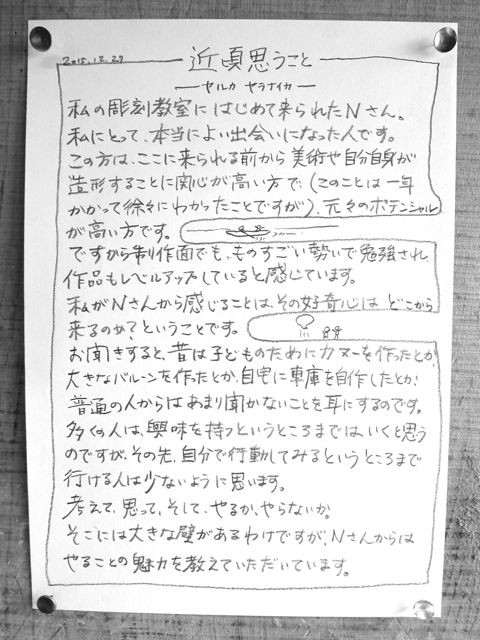 2015.12.29
近頃思うこと
ヤルカ ヤラナイカ
私の彫刻教室にはじめて来られたNさん。
私にとって、本当によい出会いになった人です。
この方は、ここに来られる前から美術や自分自身が
造形することに関心が高い方で、(このことは一年
かかって徐々にわかったことですが)、元々のポテンシャル
が高い方です。
ですから制作面でも、ものすごい勢いで勉強され、
作品もレベルアップしていると感じています。
私がNさんから感じることは、その好奇心は どこから
来るのか?ということです。
お聞きすると、昔は子どものためにカヌーを作ったとか、
大きなバルーンを作ったとか、自宅に車庫を自作したとか、
普通の人からはあまり聞かないことを耳にするのです。
多くの人は、興味を持つというところまでは、いくと思う
のですが、その先、自分で行動してみるというところまで
行ける人は少ないように思います。
考えて、思って、そして、やるか、やらないか。
そこには大きな壁があるわけですが、Nさんからは
やることの魅力を教えていただいています。